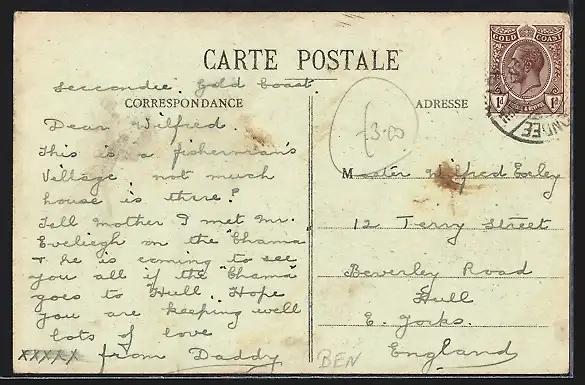 CARTE POSTALE
Seccondee. Gold Coast.
CORRESPONDANCE
Dear Wilfred.
This is a fisherman's
Village not much
house is there?
Tell Mother I met Mr.
Eveliegh on the "Chama
& he is coming to see
you all if the "Chama"
goes to Hull. Hope
you are keeping well
lots of love
xxxxx from Daddy
£3.00
ADRESSE
Master Wilfred Exley
12 Terry Street
Beverley Road
Hull
E. Yorks.
England
BEN
GOLD COAST
1d 1d